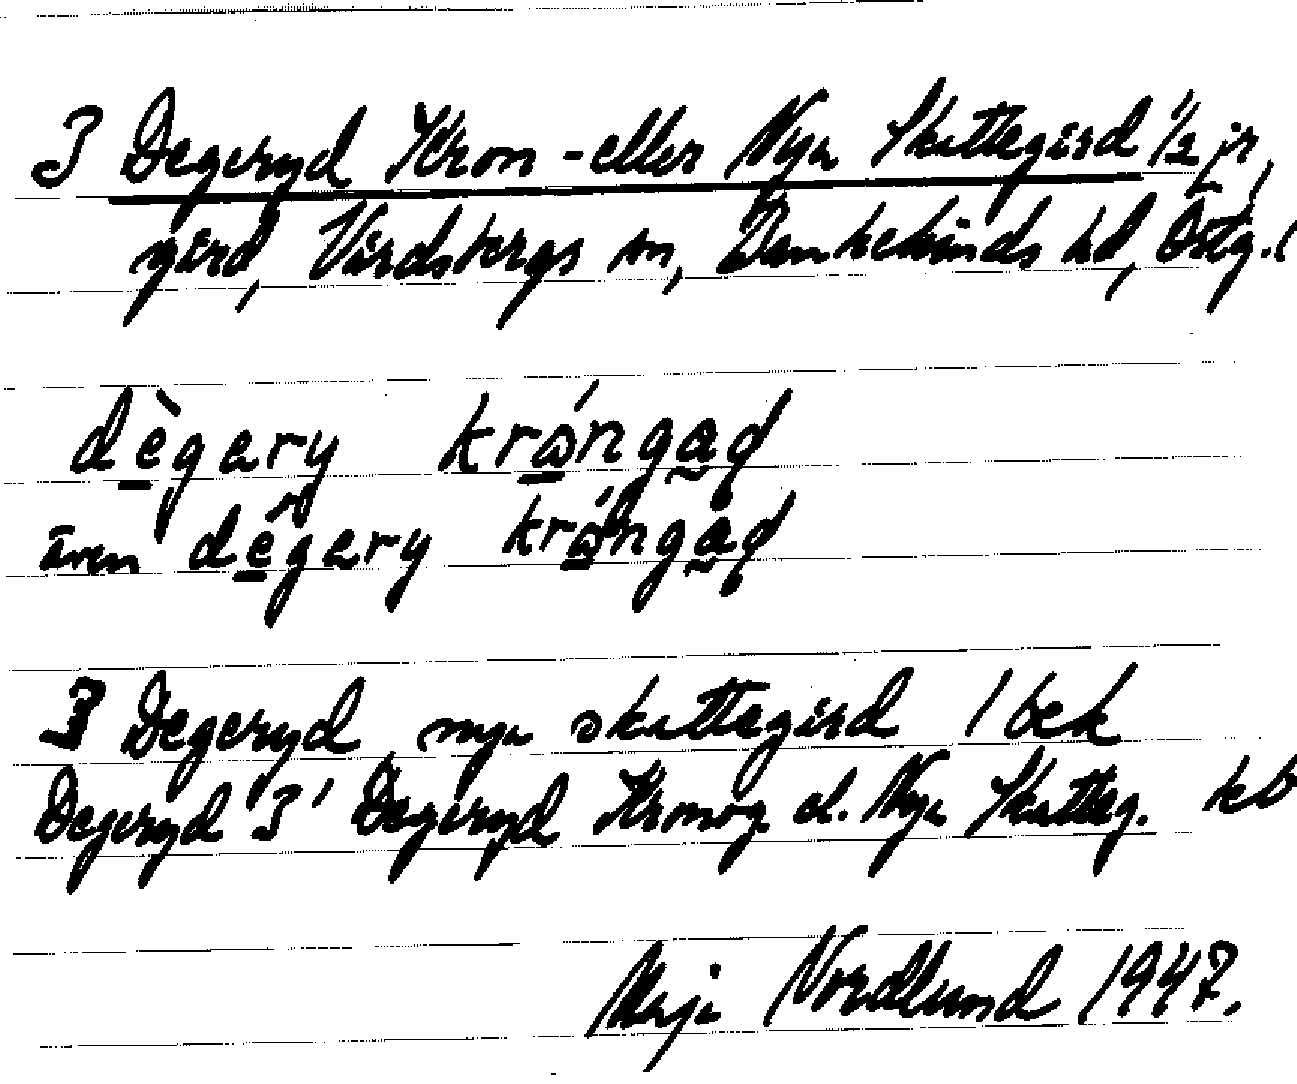 3 Degeryd Kron- eller Nya Skattegård ½ jr,
gård, Vårdsbergs sn, Hanekinds hd, Östg.l
dègary krángad
även dêgary krángad
3 Degeryd nya skattegård 1 bek
Degeryd 3' Degeryd Kronog. el. Nya Skatteg. kb
Maja Nordlund 1947.